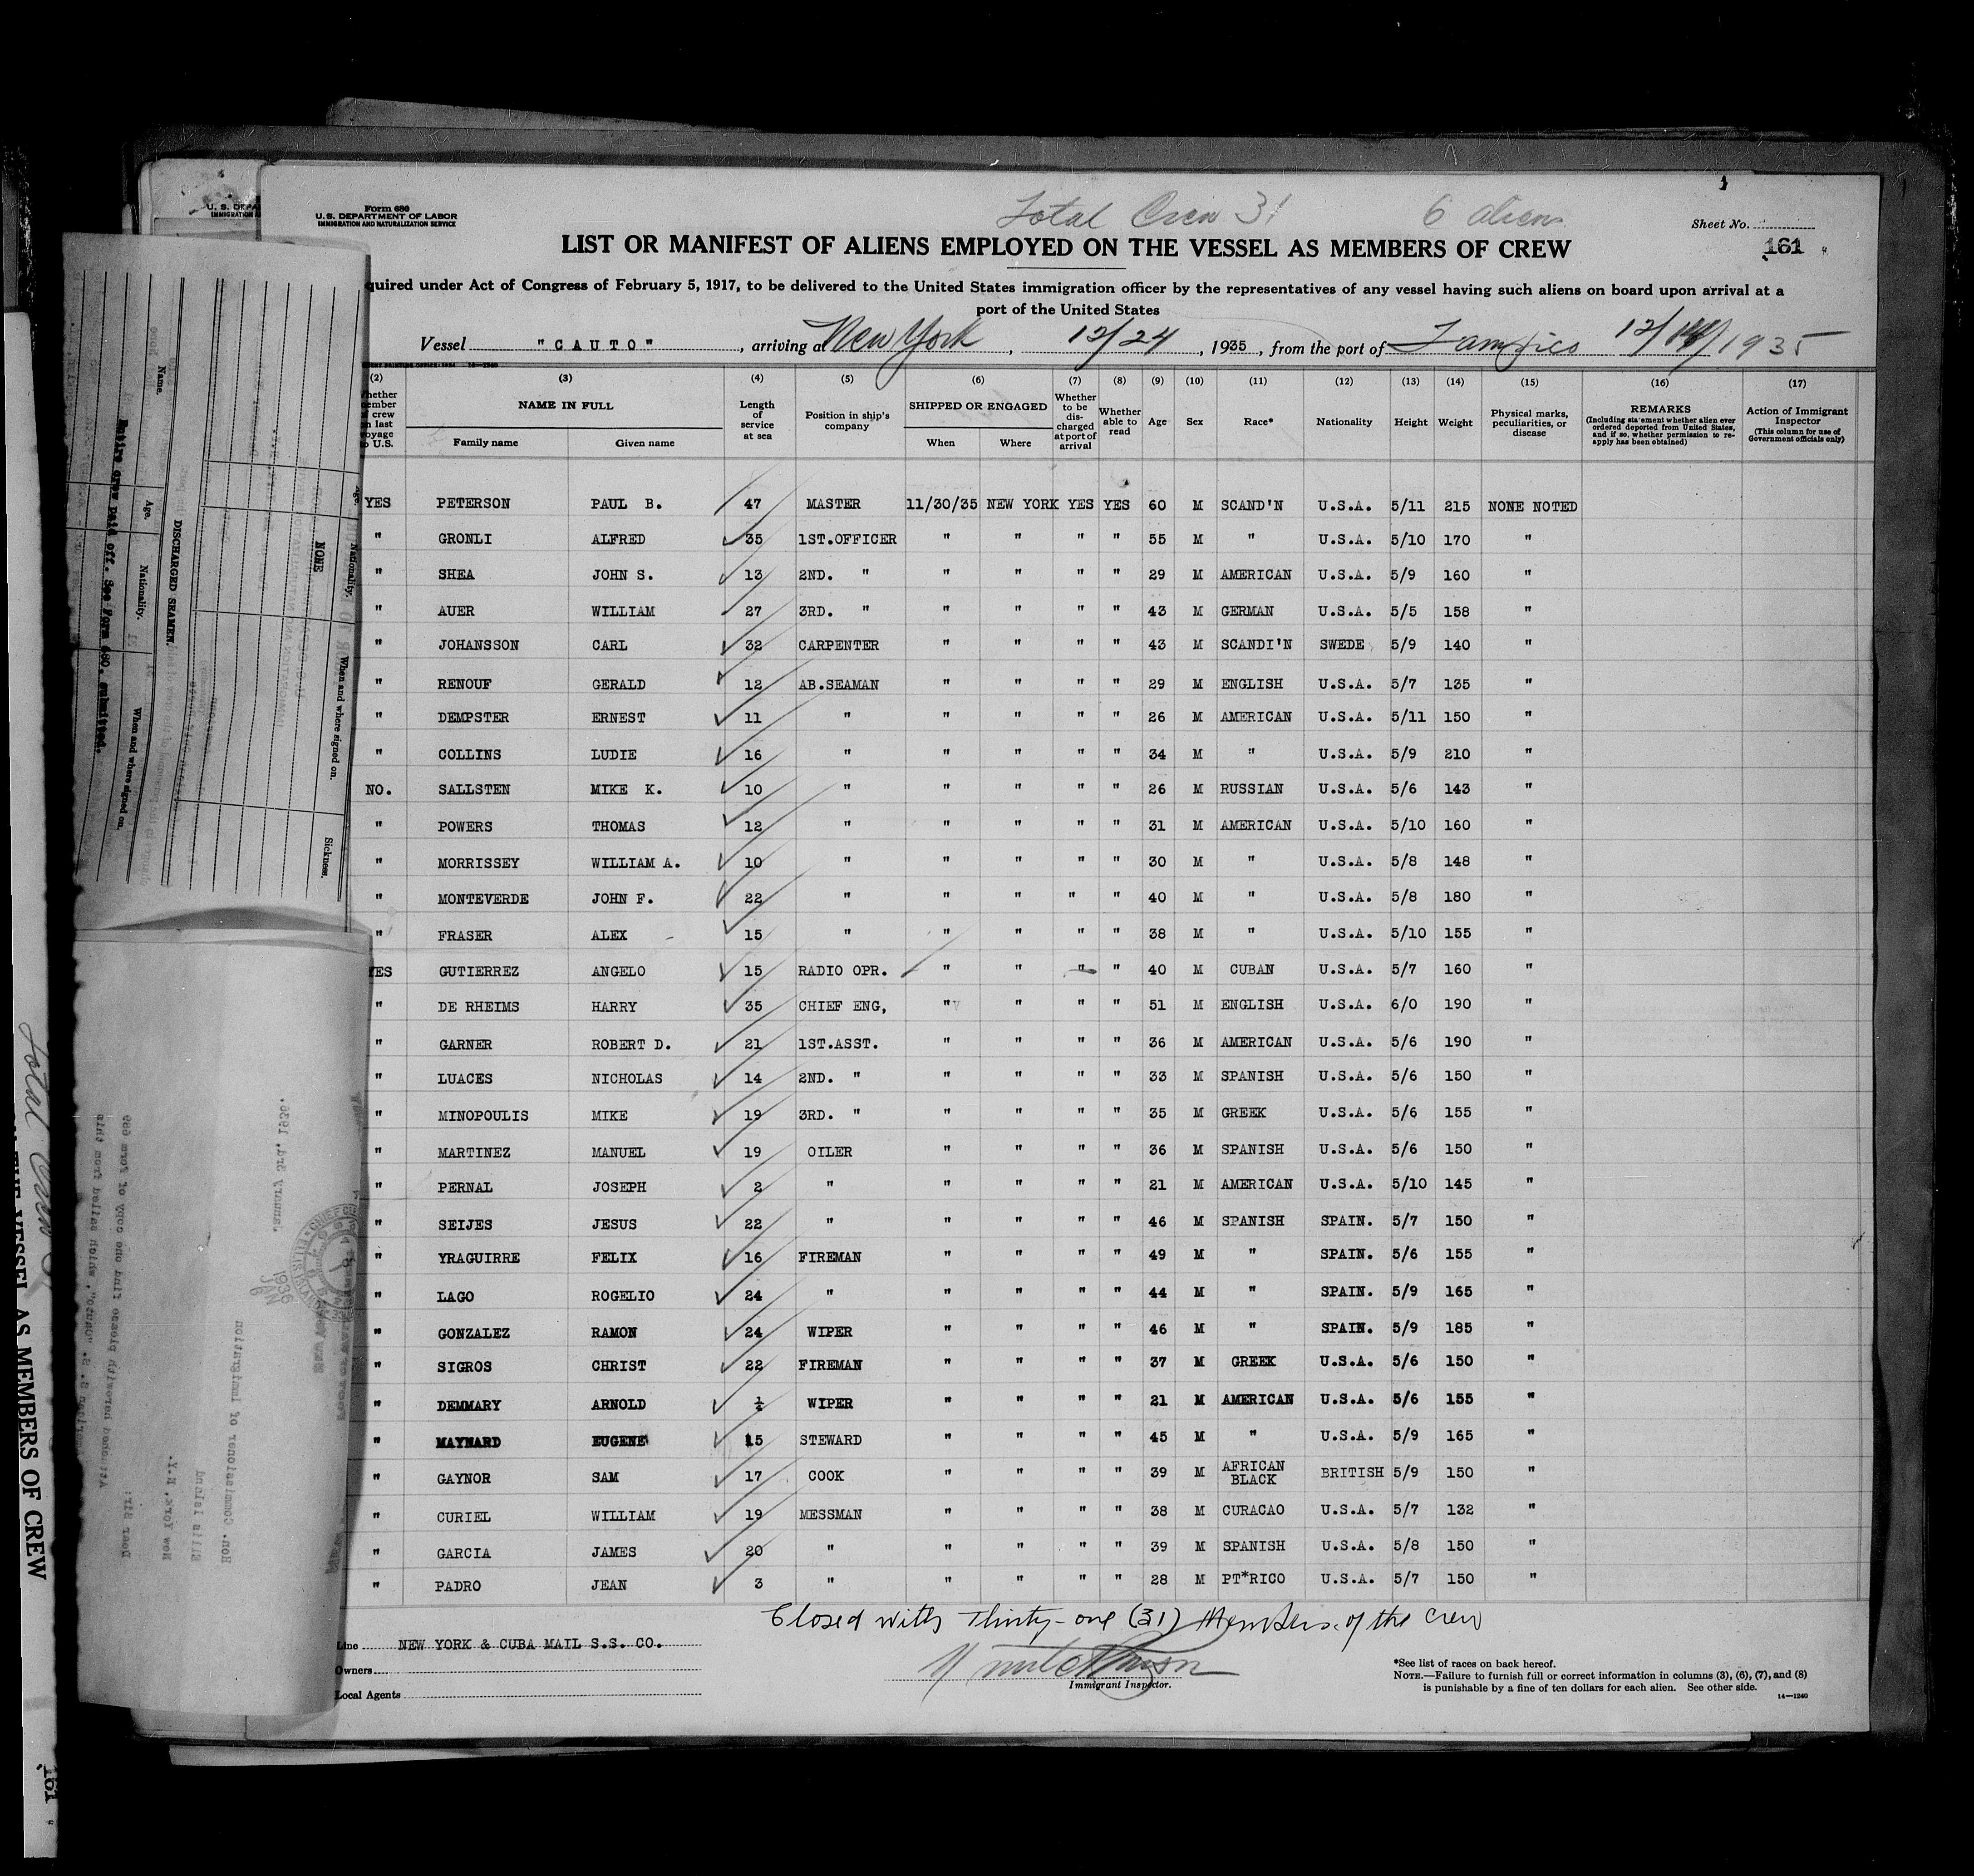 Total Crew 31 6 aliens
Form 680
U. S. DEPARTMENT OF LABOR
IMMIGRATION AND NATURALIZATION SERVICE
Sheet No.
LIST OR MANIFEST OF ALIENS EMPLOYED ON THE VESSEL AS MEMBERS OF CREW
161
quired under Act of Congress of February 5, 1917, to be delivered to the United States immigration officer by the representatives of any vessel having such aliens on board upon arrival at a
port of the United States
Vessel "CAUTO", arriving at New York, 12/24, 1935, from the port of Tampico 12/14/1935
(2) (3) (4) (5) (6) (7) (8) (9) (10) (11) (12) (13) (14) (15) (16) (17)
NAME IN FULL
Family name Given name
Length of service at sea
Position in ship's company
SHIPPED OR ENGAGED
When Where
Whether to be discharged at port of arrival
Whether able to read
Age Sex Race* Nationality Height Weight
Physical marks, peculiarities, or disease
REMARKS
(Including statement whether alien ever ordered deported from United States, and if so, whether permission to reapply has been obtained)
Action of Immigrant Inspector
(This column for use of Government officials only)
YES PETERSON PAUL B. 47 MASTER 11/30/35 NEW YORK YES YES 60 M SCAND'N U.S.A. 5/11 215 NONE NOTED
" GRONLI ALFRED 35 1ST.OFFICER " " " " 55 M " U.S.A. 5/10 170 "
" SHEA JOHN S. 13 2ND. " " " " " 29 M AMERICAN U.S.A. 5/9 160 "
" AUER WILLIAM 27 3RD. " " " " " 43 M GERMAN U.S.A. 5/5 158 "
" JOHANSSON CARL 32 CARPENTER " " " " 43 M SCANDI'N SWEDE 5/9 140 "
" RENOUF GERALD 12 AB.SEAMAN " " " " 29 M ENGLISH U.S.A. 5/7 135 "
" DEMPSTER ERNEST 11 " " " " " 26 M AMERICAN U.S.A. 5/11 150 "
" COLLINS LUDIE 16 " " " " " 34 M " U.S.A. 5/9 210 "
NO. SALLSTEN MIKE K. 10 " " " " " 26 M RUSSIAN U.S.A. 5/6 143 "
" POWERS THOMAS 12 " " " " " 31 M AMERICAN U.S.A. 5/10 160 "
" MORRISSEY WILLIAM A. 10 " " " " " 30 M " U.S.A. 5/8 148 "
" MONTEVERDE JOHN F. 22 " " " " " 40 M " U.S.A. 5/8 180 "
" FRASER ALEX 15 " " " " " 38 M " U.S.A. 5/10 155 "
YES GUTIERREZ ANGELO 15 RADIO OPR. " " " " 40 M CUBAN U.S.A. 5/7 160 "
" DE RHEIMS HARRY 35 CHIEF ENG, " " " " 51 M ENGLISH U.S.A. 6/0 190 "
" GARNER ROBERT D. 21 1ST.ASST. " " " " 36 M AMERICAN U.S.A. 5/6 190 "
" LUACES NICHOLAS 14 2ND. " " " " " 33 M SPANISH U.S.A. 5/6 150 "
" MINOPOULIS MIKE 19 3RD. " " " " " 35 M GREEK U.S.A. 5/6 155 "
" MARTINEZ MANUEL 19 OILER " " " " 36 M SPANISH U.S.A. 5/6 150 "
" PERNAL JOSEPH 2 " " " " " 21 M AMERICAN U.S.A. 5/10 145 "
" SEIJES JESUS 22 " " " " " 46 M SPANISH SPAIN. 5/7 150 "
" YRAGUIRRE FELIX 16 FIREMAN " " " " 49 M " SPAIN. 5/6 155 "
" LAGO ROGELIO 24 " " " " " 44 M " SPAIN. 5/9 165 "
" GONZALEZ RAMON 24 WIPER " " " " 46 M " SPAIN. 5/9 185 "
" SIGROS CHRIST 22 FIREMAN " " " " 37 M GREEK U.S.A. 5/6 150 "
" DEMMARY ARNOLD WIPER " " " " 21 M AMERICAN U.S.A. 5/6 155 "
" MAYNARD EUGENE 15 STEWARD " " " " 45 M " U.S.A. 5/9 165 "
" GAYNOR SAM 17 COOK " " " " 39 M AFRICAN BLACK BRITISH 5/9 150 "
" CURIEL WILLIAM 19 MESSMAN " " " " 38 M CURACAO U.S.A. 5/7 132 "
" GARCIA JAMES 20 " " " " " 39 M SPANISH U.S.A. 5/8 150 "
" PADRO JEAN 3 " " " " " 28 M PT*RICO U.S.A. 5/7 150 "
Closed with Thirty-one (31) Members of the crew
Line NEW YORK & CUBA MAIL S.S. CO.
Owners
Local Agents
Immigrant Inspector.
*See list of races on back hereof.
NOTE.—Failure to furnish full or correct information in columns (3), (6), (7), and (8)
is punishable by a fine of ten dollars for each alien. See other side.
14—1240
Name. Age. Nationality. When and where signed on.
Entire crew paid off. See Form 680, submitted.
DISCHARGED SEAMEN
NONE
Nationality. When and where signed on. Sickness.
January 3rd, 1936.
Hon. Commissioner of Immigration
Ellis Island
New York, N.Y.
Dear Sir:
Attached herewith please find one copy of Form 689
"Cauto", which sailed from this
Total Crew
VESSEL AS MEMBERS OF CREW
161